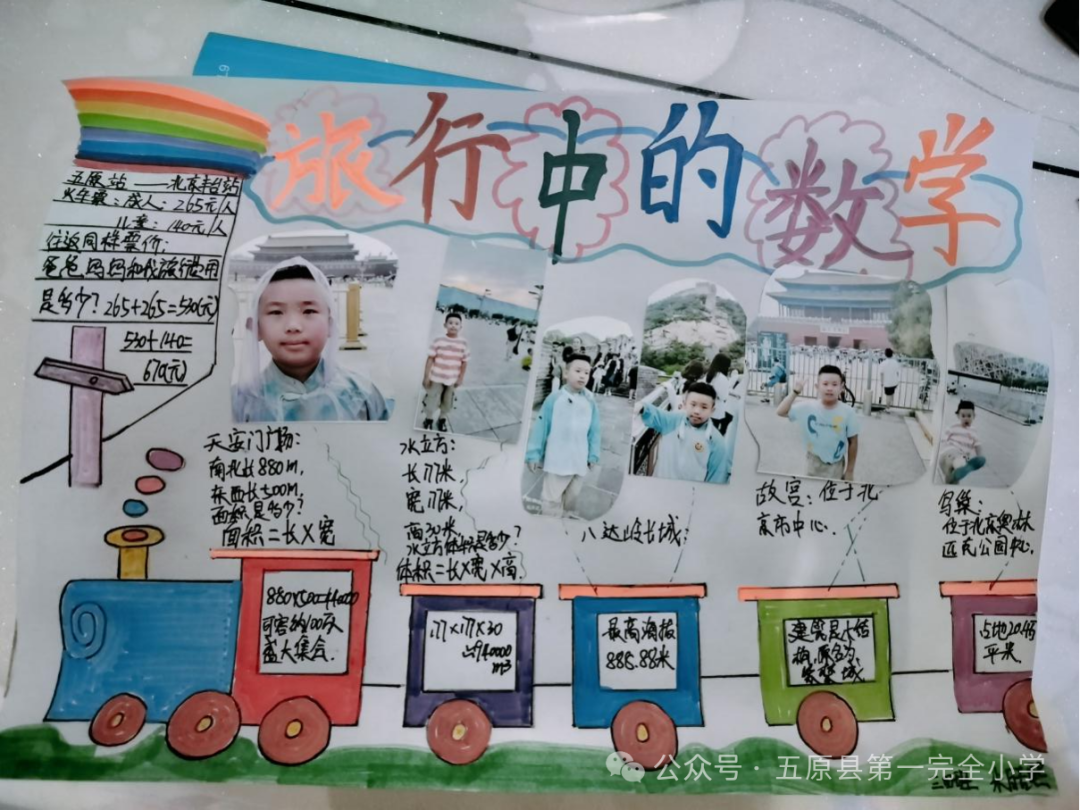 旅行中的数学
五原站——北京丰台站
火车票:成人:265元/人
儿童:140元/人
往返同样票价:
爸爸妈妈和我旅行费用
是多少?265+265=530(元)
530+140=
670(元)
天安门广场:
南北长880m,
东西长500m,
面积是多少?
面积=长×宽
水立方:
长177米,
宽177米,
高30米,
水立方体积是多少?
体积=长×宽×高.
八达岭长城:
故宫:位于北
京市中心.
鸟巢:
位于北京奥林
匹克公园中心.
880×500=440000
可容纳100万人
盛大集会.
177×177×30
≈940000
m3
最高海拔
888.88米
建筑是木结
构,原名为
紫禁城
占地20.4万
平米.
公众号 · 五原县第一完全小学